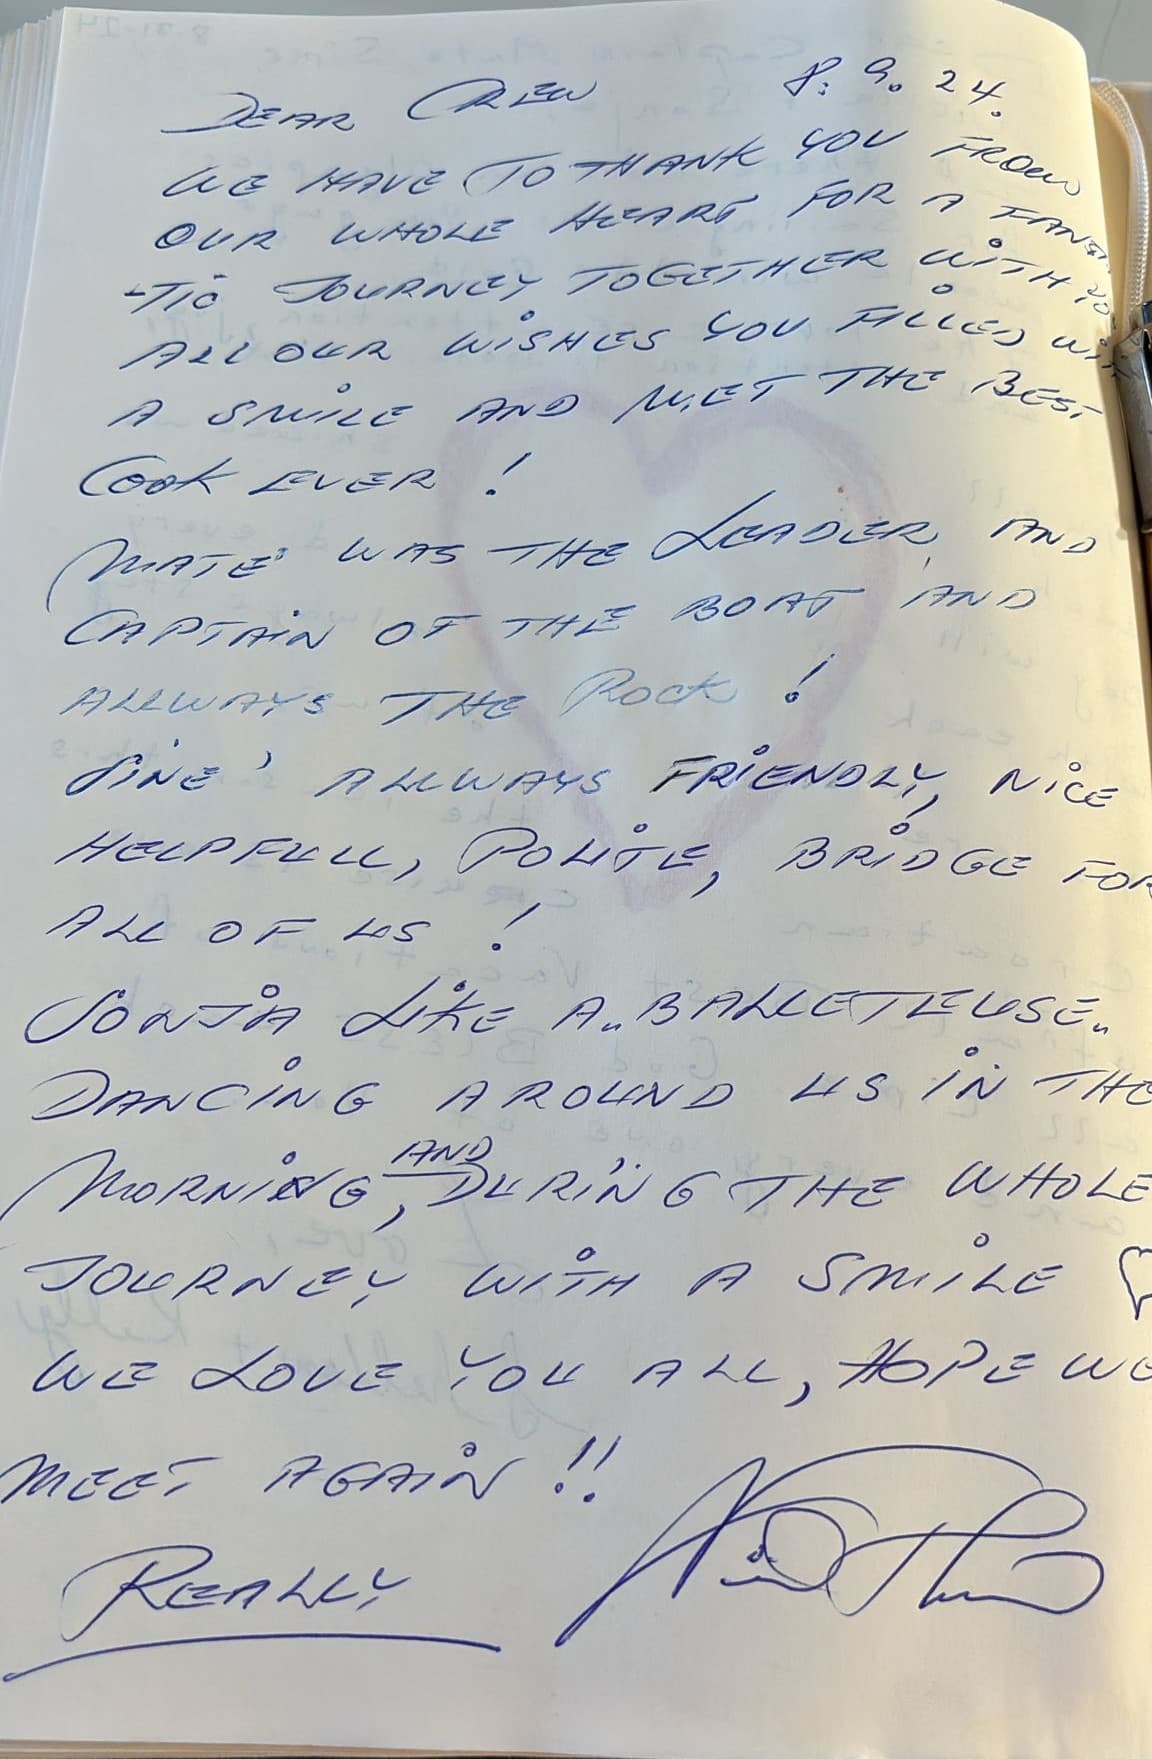 8. 9. 24.
DEAR CREW
WE HAVE TO THANK YOU FROM
OUR WHOLE HEART FOR A FANS
-TIC JOURNEY TOGETHER WITH YO
ALL OUR WISHES YOU FILLED WI
A SMILE AND MET THE BEST
COOK EVER !
MATE' WAS THE LEADER AND
CAPTAIN OF THE BOAT AND
ALLWAYS THE ROCK !
SINE' ALLWAYS FRIENDLY, NICE
HELPFULL, POLITE, BRIDGE FOR
ALL OF US !
SONJA LIKE A „BALLETEUSE"
DANCING AROUND US IN THE
MORNING, AND DURING THE WHOLE
JOURNEY WITH A SMILE ♡
WE LOVE YOU ALL, HOPE WE
MEET AGAIN !!
REALLY